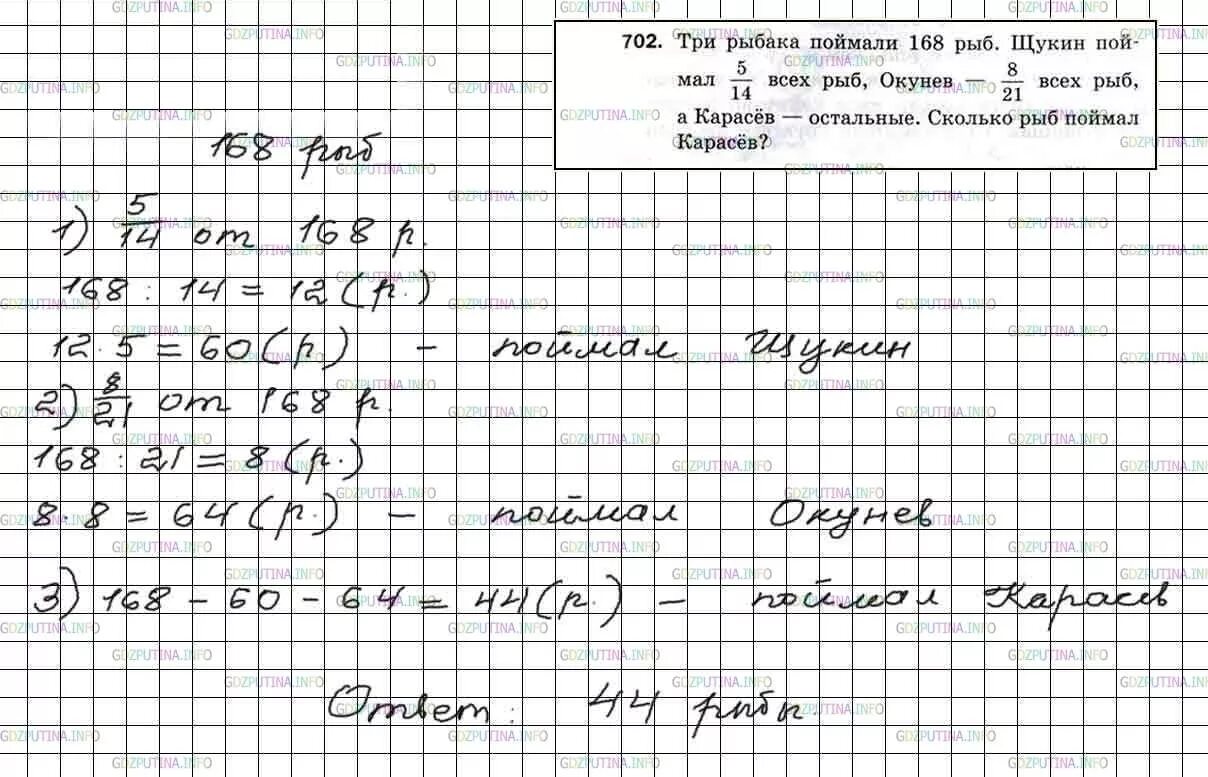 702. Три рыбака поймали 168 рыб. Щукин пой-
мал 5/14 всех рыб, Окунев — 8/21 всех рыб,
а Карасёв — остальные. Сколько рыб поймал
Карасёв?
168 рыб
1) 5/14 от 168 р.
168 : 14 = 12 (р.)
12 · 5 = 60 (р) - поймал Щукин
2) 8/21 от 168 р.
168 : 21 = 8 (р.)
8 · 8 = 64 (р.) - поймал Окунев
3) 168 - 60 - 64 = 44 (р.) - поймал Карасев
Ответ: 44 рыбы.
GDZPUTINA.INFO